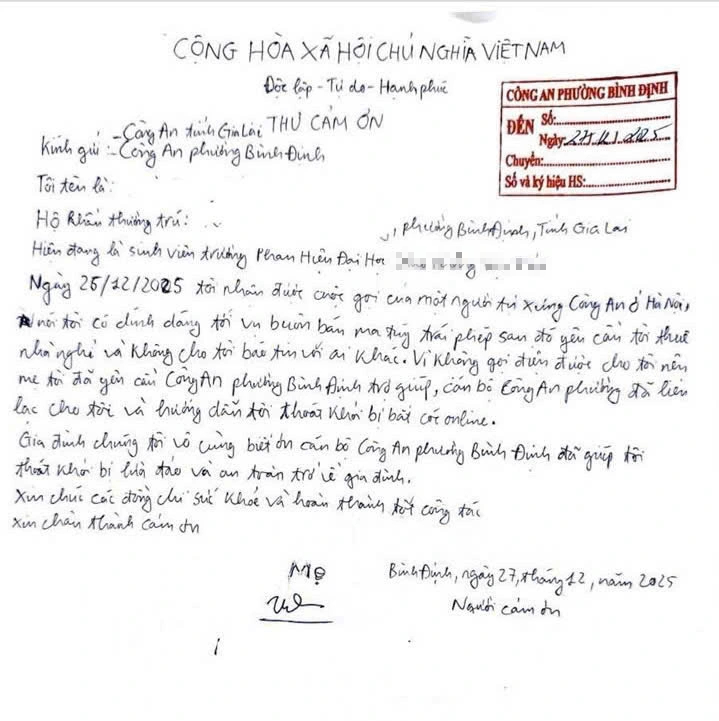 CỘNG HÒA XÃ HỘI CHỦ NGHĨA VIỆT NAM
Độc lập - Tự do - Hạnh phúc
THƯ CẢM ƠN
CÔNG AN PHƯỜNG BÌNH ĐỊNH
ĐẾN Số:
Ngày 27/12/2025
Chuyển:
Số và ký hiệu HS:
Kính gửi: - Công An tỉnh Gia Lai
- Công An phường Bình Định
Tôi tên là:
Hộ khẩu thường trú: , phường Bình Định, Tỉnh Gia Lai
Hiện đang là sinh viên trường Phân Hiệu Đại Học
Ngày 25/12/2025 tôi nhận được cuộc gọi của một người tự xưng Công An ở Hà Nội,
nói tôi có dính dáng tới vụ buôn bán ma túy trái phép sau đó yêu cầu tôi thuê
nhà nghỉ và không cho tôi báo tin với ai khác. Vì không gọi điện được cho tôi nên
mẹ tôi đã yêu cầu Công An phường Bình Định trợ giúp, cán bộ Công An phường đã liên
lạc cho tôi và hướng dẫn tôi thoát khỏi bị bắt cóc online.
Gia đình chúng tôi vô cùng biết ơn cán bộ Công An phường Bình Định đã giúp tôi
thoát khỏi bị lừa đảo và an toàn trở về gia đình.
Xin chúc các đồng chí sức khỏe và hoàn thành tốt công tác
Xin chân thành cảm ơn
Bình Định, ngày 27, tháng 12, năm 2025
Mẹ
Người cảm ơn